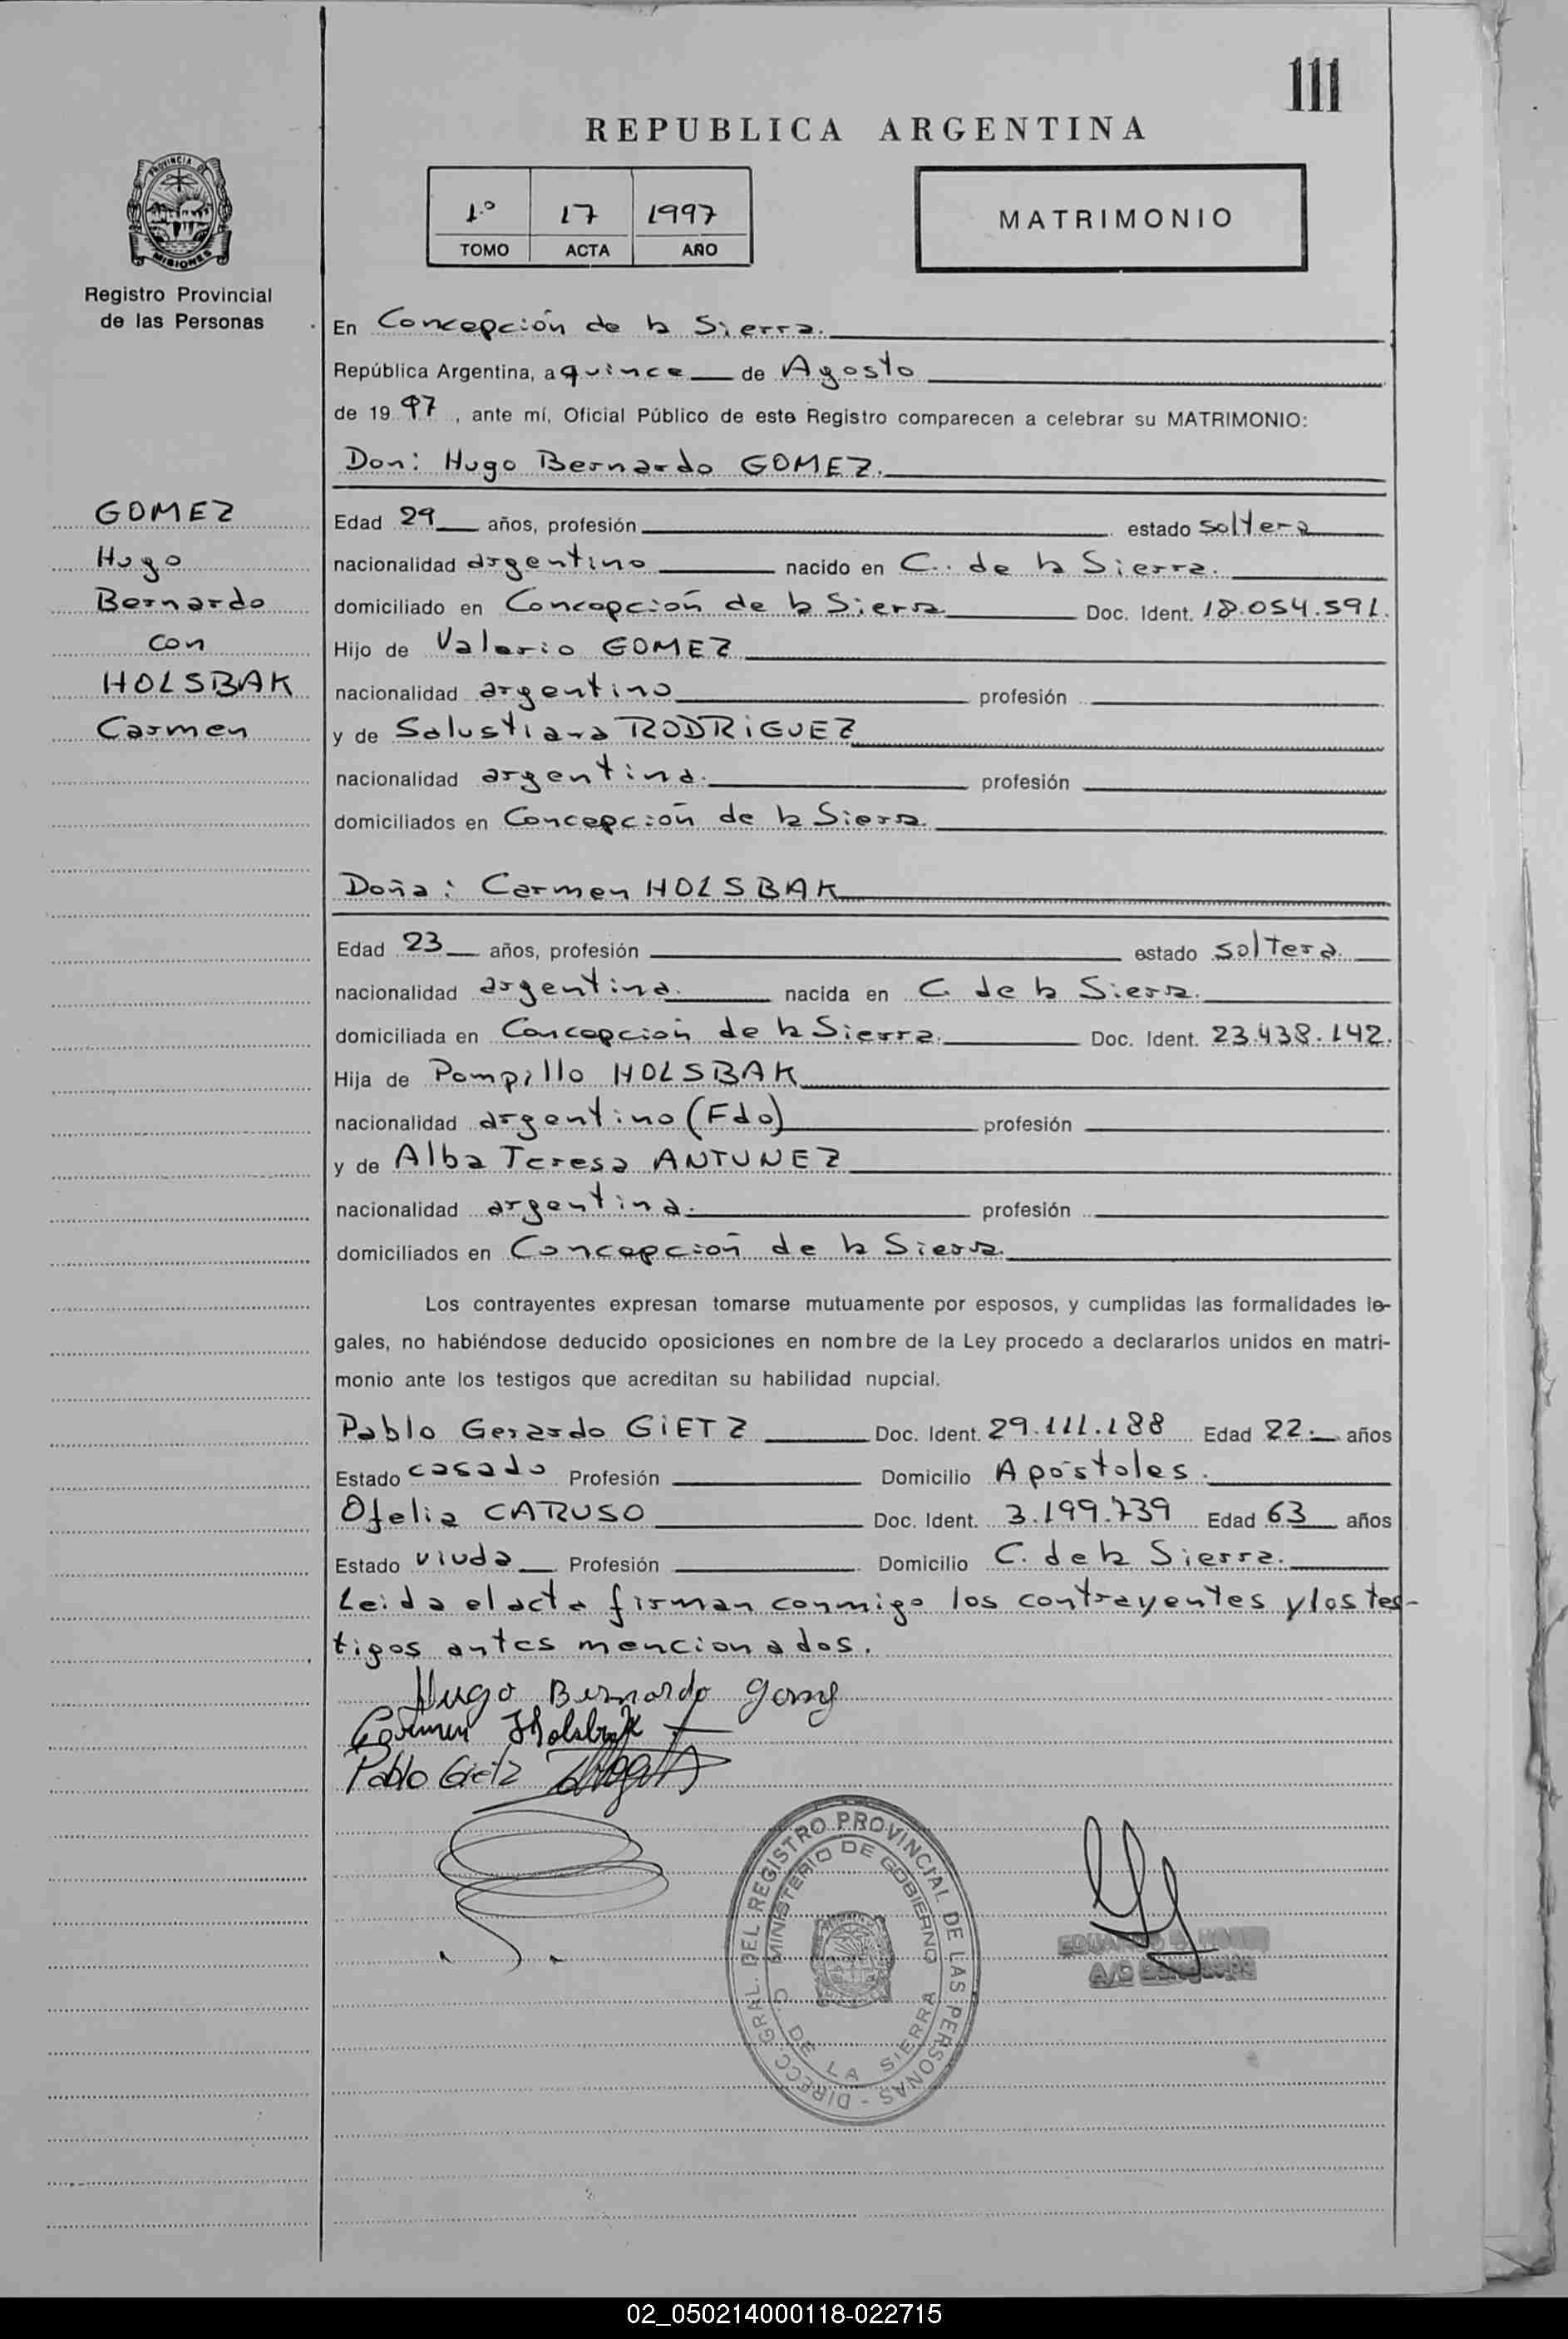 111
REPUBLICA ARGENTINA
1º 17 1997
TOMO ACTA AÑO
MATRIMONIO
PROVINCIA DE
MISIONES
Registro Provincial
de las Personas
En Concepción de la Sierra.
República Argentina, a quince de Agosto
de 19 97, ante mí, Oficial Público de este Registro comparecen a celebrar su MATRIMONIO:
Don: Hugo Bernardo GOMEZ.
GOMEZ
Hugo
Bernardo
con
HOLSBAK
Carmen
Edad 29 años, profesión estado soltera
nacionalidad argentino nacido en C. de la Sierra.
domiciliado en Concepción de la Sierra Doc. Ident. 18.054.591.
Hijo de Valerio GOMEZ
nacionalidad argentino profesión
y de Salustiana RODRiGUEZ
nacionalidad argentina. profesión
domiciliados en Concepción de la Sierra.
Doña: Carmen HOLSBAK
Edad 23 años, profesión estado soltera.
nacionalidad argentina. nacida en C. de la Sierra.
domiciliada en Concepción de la Sierra. Doc. Ident. 23.438.142.
Hija de Pompillo HOLSBAK
nacionalidad argentino (Fdo) profesión
y de Alba Teresa ANTUNEZ
nacionalidad argentina. profesión
domiciliados en Concepción de la Sierra.
Los contrayentes expresan tomarse mutuamente por esposos, y cumplidas las formalidades le-
gales, no habiéndose deducido oposiciones en nombre de la Ley procedo a declararlos unidos en matri-
monio ante los testigos que acreditan su habilidad nupcial.
Pablo Gerardo GiETZ Doc. Ident. 29.111.188 Edad 22. años
Estado casado Profesión Domicilio Apóstoles.
Ofelia CARUSO Doc. Ident. 3.199.739 Edad 63 años
Estado viuda Profesión Domicilio C. de la Sierra.
Leida el acta firman conmigo los contrayentes y los tes-
tigos antes mencionados.
Hugo Bernardo Gomez
Carmen Holsbak
Pablo Gietz
DIRECC. GRAL. DEL REGISTRO PROVINCIAL DE LAS PERSONAS -
MINISTERIO DE GOBIERNO
DE LA SIERRA
EDUARDO
A/C
02_050214000118-022715